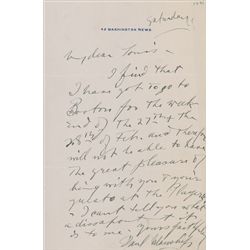 Saturday
42 WASHINGTON MEWS
My dear Louis -
I find that
I have got to go to
Boston for the week
end of the 27th & the
28th of Feb. and therefore
will not be able to have
the great pleasure of
being with you & your
guests at the Players
I can't tell you what
a disappoint it
is to me. Yours faithfully
Paul Manship